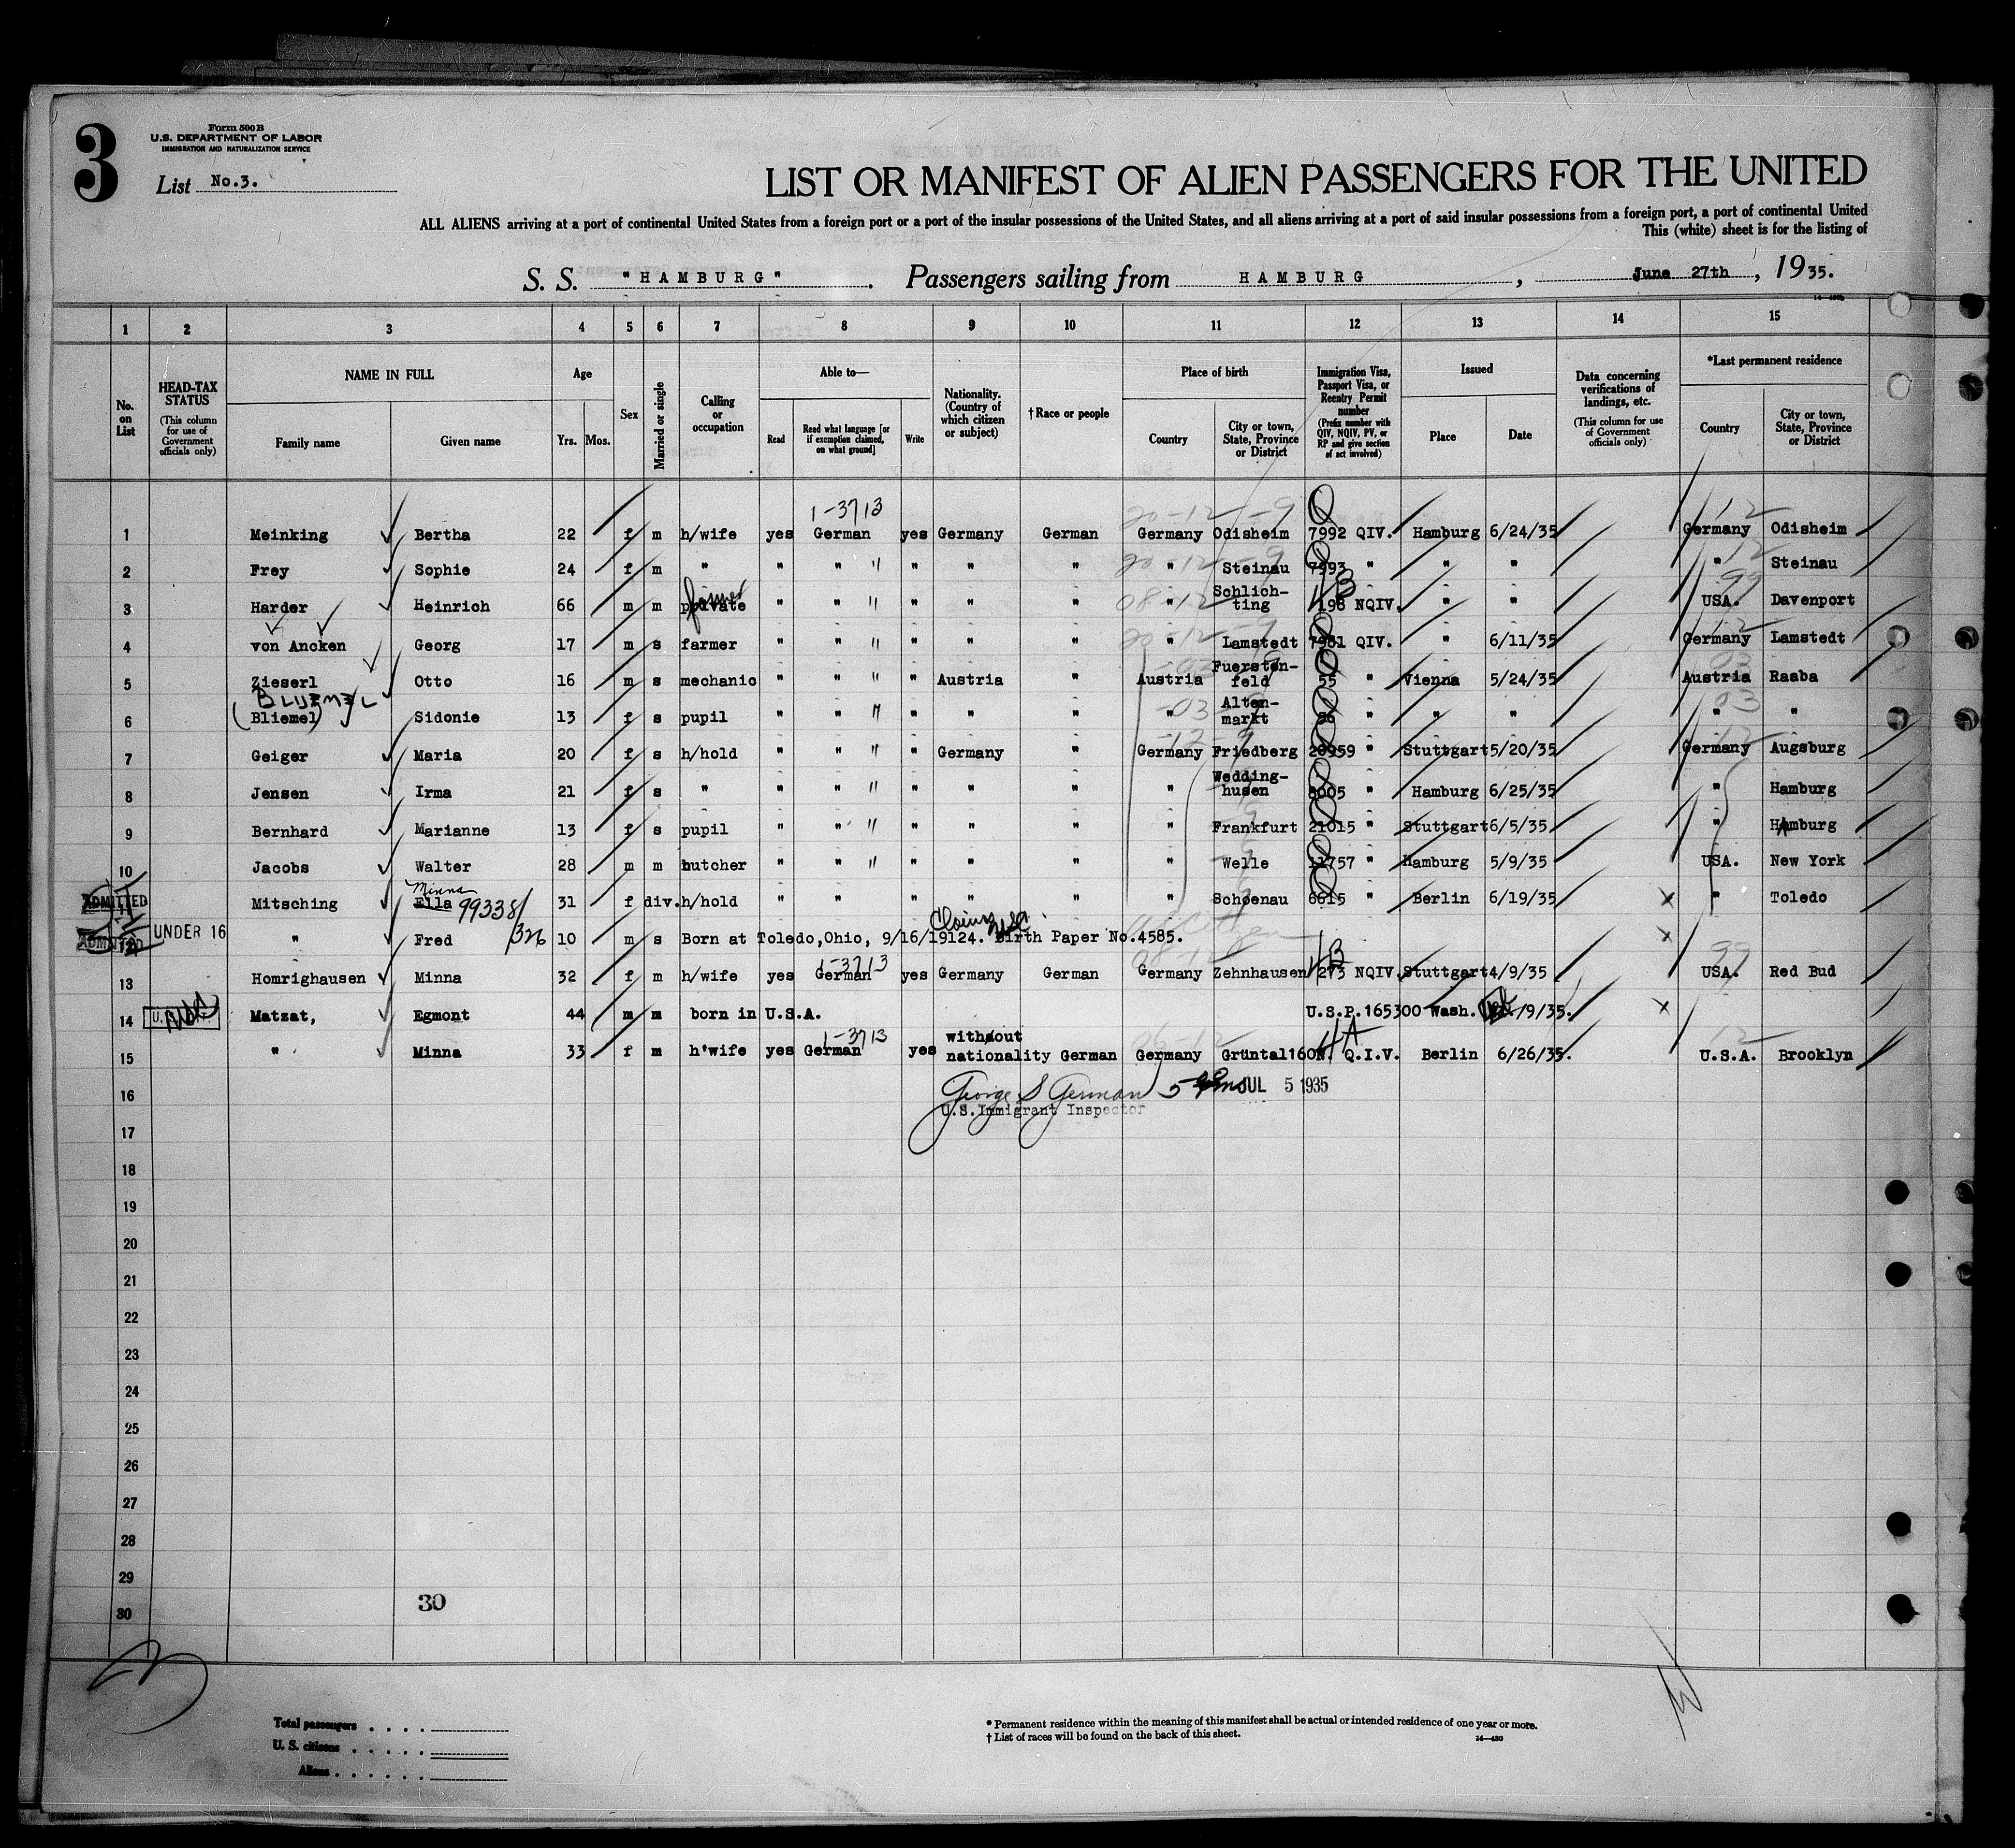 3
Form 500 B
U.S. DEPARTMENT OF LABOR
IMMIGRATION AND NATURALIZATION SERVICE
List No.3.
LIST OR MANIFEST OF ALIEN PASSENGERS FOR THE UNITED
ALL ALIENS arriving at a port of continental United States from a foreign port or a port of the insular possessions of the United States, and all aliens arriving at a port of said insular possessions from a foreign port, a port of continental United
This (white) sheet is for the listing of
S. S. "HAMBURG" . Passengers sailing from HAMBURG , June 27th , 1935.
1 2 3 4 5 6 7 8 9 10 11 12 13 14 15
No. on List
HEAD-TAX STATUS (This column for use of Government officials only)
NAME IN FULL Family name Given name
Age Yrs. Mos.
Sex
Married or single
Calling or occupation
Able to— Read Read what language [or if exemption claimed, on what ground] Write
Nationality. (Country of which citizen or subject)
†Race or people
Place of birth Country City or town, State, Province or District
Immigration Visa, Passport Visa, or Reentry Permit number (Prefix number with QIV, NQIV, PV, or RP and give section of act involved)
Issued Place Date
Data concerning verifications of landings, etc. (This column for use of Government officials only)
*Last permanent residence Country City or town, State, Province or District
1-3713 20-12-9 12
1 Meinking Bertha 22 f m h/wife yes German yes Germany German Germany Odisheim 7992 QIV. Hamburg 6/24/35 Germany Odisheim
20-12-9 12
2 Frey Sophie 24 f m " " " " " " " " Steinau 7993 " " " " Steinau
farmer 08-12 3B 99
3 Harder Heinrich 66 m m private " " " " " " " Schlich-ting 198 NQIV. " " USA. Davenport
20-12-9 12
4 von Ancken Georg 17 m s farmer " " " " " " " Lamstedt 7981 QIV. " 6/11/35 Germany Lamstedt
-03 03
5 Zieserl Otto 16 m s mechanic " " " " Austria " Austria Fuersten-feld 55 " Vienna 5/24/35 Austria Raaba
BLIEMEL
-03 03
6 (Bliemel) Sidonie 13 f s pupil " " " " " " " Alten-markt 56 " " " " "
-12-9 12
7 Geiger Maria 20 f s h/hold " " " " Germany " Germany Friedberg 20959 " Stuttgart 5/20/35 Germany Augsburg
8 Jensen Irma 21 f s " " " " " " " " Wedding-husen 8005 " Hamburg 6/25/35 " Hamburg
9 Bernhard Marianne 13 f s pupil " " " " " " " Frankfurt 21015 " Stuttgart 6/5/35 " Hamburg
10 Jacobs Walter 28 m m butcher " " " " " " " Welle 11757 " Hamburg 5/9/35 USA. New York
Minna
ADMITTED 11 Mitsching Ella 99338/326 31 f div. h/hold " " " " " " Schoenau 6615 " Berlin 6/19/35 x " Toledo
UNDER 16 Claims USC
ADMITTED 12 " Fred 10 m s Born at Toledo,Ohio, 9/16/19124. Birth Paper No.4585. US Citizen x
1-3713 08-12 3B 99
13 Homrighausen Minna 32 f m h/wife yes German yes Germany German Germany Zehnhausen 273 NQIV. Stuttgart 4/9/35 USA. Red Bud
14 Matzat, Egmont 44 m m born in U.S.A. U.S.P.165300 Wash. /9/35. x
1-3713 06-12 4A 12
15 " Minna 33 f m h'wife yes German yes without nationality German Germany Grüntal 160N. Q.I.V. Berlin 6/26/35. U.S.A. Brooklyn
George S German JUL 5 1935
16 U.S.Immigrant Inspector
17
18
19
20
21
22
23
24
25
26
27
28
29
30
30
Total passengers . . . .
U. S. citizens . . . . .
Aliens . . . . . .
* Permanent residence within the meaning of this manifest shall be actual or intended residence of one year or more.
† List of races will be found on the back of this sheet.
14—430